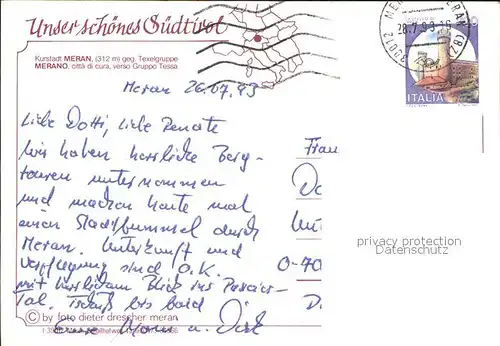 Unser schönes Südtirol
Kurstadt MERAN, (312 m) geg. Texelgruppe
MERANO, città di cura, verso Gruppo Tessa
28.7.93
39012 MERAN
ITALIA
Meran 26.07.93
Liebe Dotti, Liebe Renate
Wir haben herrliche Berg-
touren unternommen
und machen heute mal
einen Stadtbummel durch
Meran. Unterkunft und
Verpflegung sind o.K.
mit herrlichem Blick ins Passeier-
Tal. Tschüß bis bald
Eure u. Dirk
Frau
privacy protection
Datenschutz
© by foto dieter drescher meran